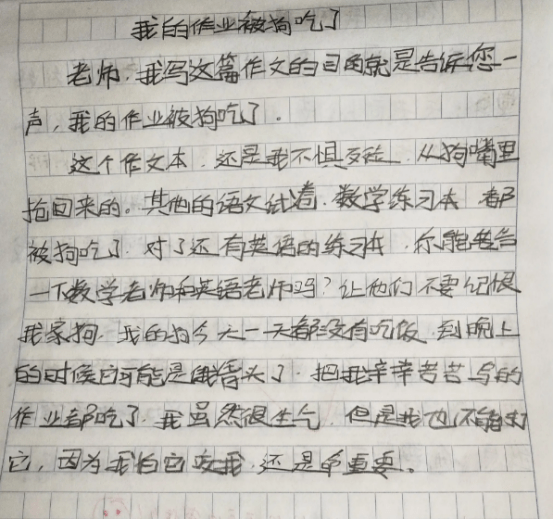 我的作业被狗吃了
老师，我写这篇作文的目的就是告诉您一
声，我的作业被狗吃了．
这个作文本．还是我不惧死，从狗嘴里
抢回来的。其他的语文试卷．数学练习本 都
被狗吃了．对了还有英语的练习本．你能转告
一下数学老师和英语老师吗？让他们不要记恨
我家狗．我的狗今天一天都没有吃饭 到晚上
的时候它可能是饿昏头了．把我辛辛苦苦写的
作业都吃了．我虽然很生气．但是我也不能打
它，因为我怕它咬我．还是命重要。